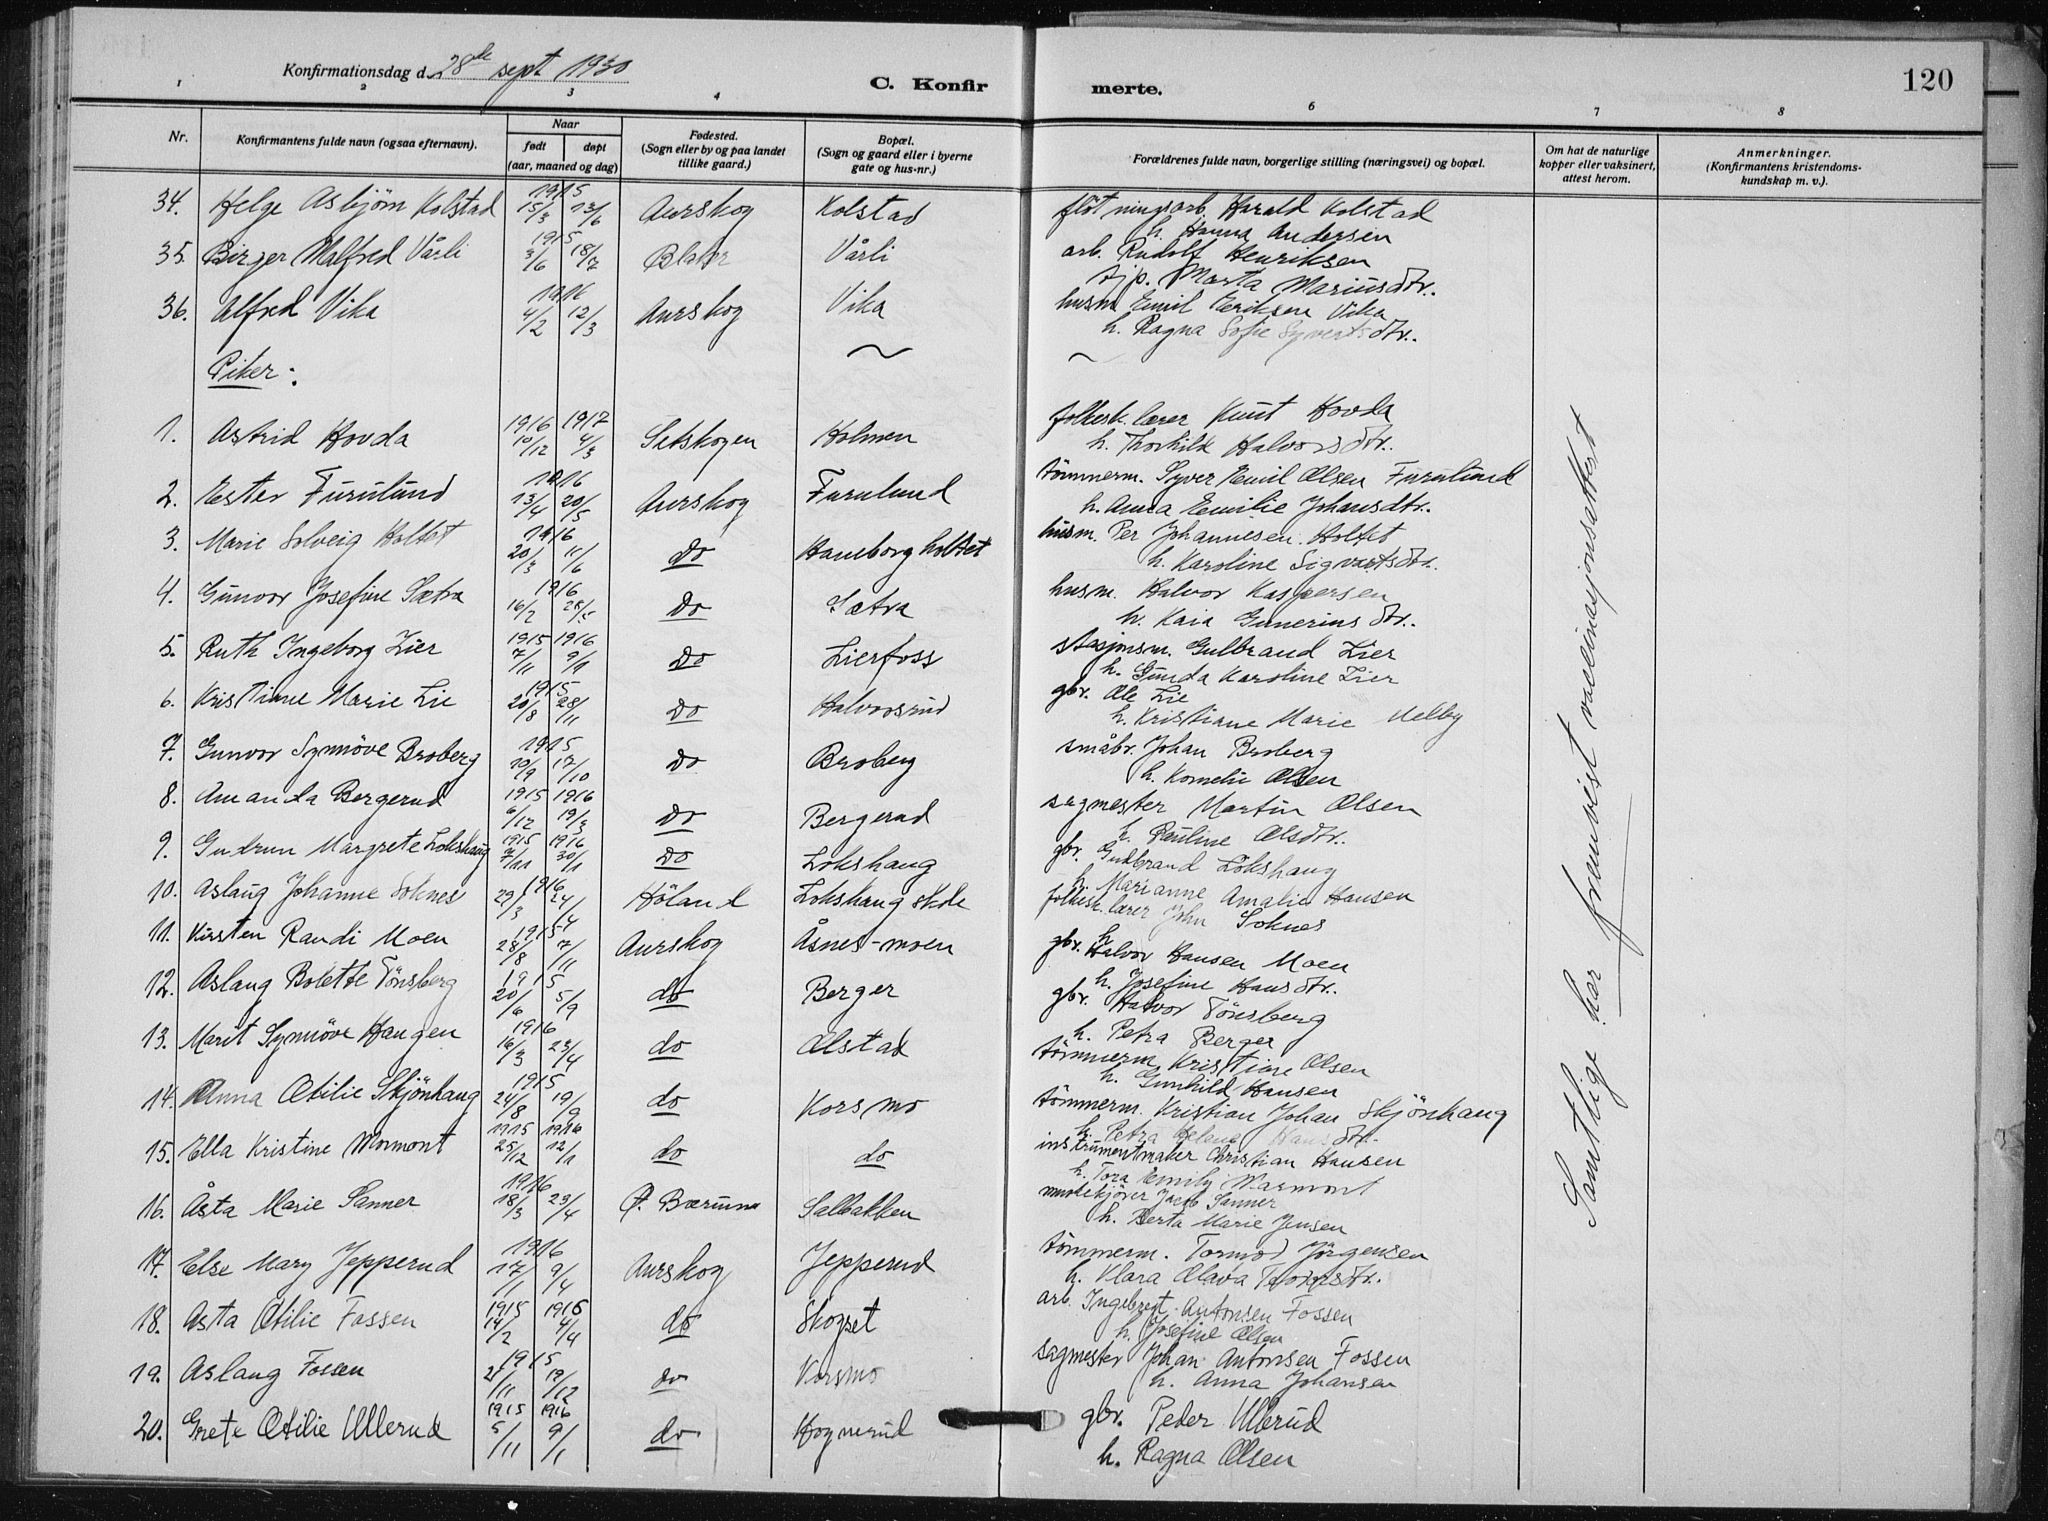 Konfirmationsdag d. 28de sept 1930
C. Konfirmerte.
120
1 2 3 4 5 6 7 8
Nr.
Konfirmantens fulde navn (ogsaa efternavn).
Naar
født døpt
(aar, maaned og dag)
Fødested.
(Sogn eller by og paa landet
tillike gaard.)
Bopæl.
(Sogn og gaard eller i byerne
gate og hus-nr.)
Forældrenes fulde navn, borgerlige stilling (næringsvei) og bopæl.
Om hat de naturlige
kopper eller vaksinert,
attest herom.
Anmerkninger.
(Konfirmantens kristendoms-
kundskap m. v.).
34. Helge Asbjørn Kolstad 1915 15/3 13/6 Aurskog Kolstad fløtningsarb. Harald Kolstad
h. Hanna Andersen
35. Birger Malfred Vårli 1915 3/6 18/7 Blaker Vårli arb. Rudolf Henriksen
tjp. Marta Mariusdtr.
36. Alfred Vika 1916 4/2 12/3 Aurskog Vika husm Emil Eriksen Vika
h. Ragna Sofie Syvertsdtr.
Piker:
1. Astrid Hovda 1916 10/12 1917 4/3 Setskogen Holmen folkesk.lærer Knut Hovda
h. Thorhild Halvorsdtr.
2. Ester Furulund 1916 13/4 20/5 Aurskog Furulund tömmerm. Syver Emil Olsen Furulund
h. Anna Emilie Johansdtr.
3. Marie Solveig Holtet 1916 20/3 11/6 do Haneborgholtet husm. Per Johannesen Holtet
h. Karoline Sigvartsdtr.
4. Gunvor Josefine Sætra 1916 16/2 28/5 do Sætra husm. Halvor Kaspersen
h. Kaia Gunerius dtr.
5. Ruth Ingeborg Lier 1915 7/11 1916 9/1 do Lierfoss stasjonsm. Gulbrand Lier
h. Gunda Karoline Lier
6. Kristiane Marie Lie 1915 20/8 28/11 do Halvorsrud gbr. Ole Lie
h. Kristiane Marie Melby
7. Gunvor Synnöve Broberg 1915 10/9 17/10 do Broberg småbr. Johan Broberg
h. Kornelie Olsen
8. Amanda Bergerud 1915 6/12 1916 19/3 do Bergerud sagmester Martin Olsen
h. Pauline Olsdtr.
9. Gudrun Margrete Lökshaug 1915 7/11 1916 30/1 do Lokshaug gbr. Gulbrand Lökshaug
h. Marianne Amalie Hansen
10. Aslaug Johanne Soknes 1916 29/3 24/4 Höland Lokshaug skole folkesk.lærer John Soknes
h.
11. Kirsten Randi Moen 1915 28/8 7/11 Aurskog Åsnes-moen gbr. Halvor Hansen Moen
h. Josefine Hansdtr.
12. Aslaug Bolette Tönsberg 1915 20/6 5/9 do Berger gbr. Halvor Tönsberg
h. Petra Berger
13. Marit Synnöve Haugen 1916 16/3 23/4 do Olstad tömmerm. Kristian Olsen
h. Gunhild Hansen
14. Anna Otilie Skjönhaug 1915 24/8 19/9 do Korsmo tömmerm. Kristian Johan Skjönhaug
h. Petra Helene Hansdtr.
15. Ella Kristine Mormont 1915 25/12 1916 12/1 do do instrumentmaker Christian Hansen
h. Tora Emily Marmont
16. Åsta Marie Sanner 1916 18/3 23/4 Ø. Bærum Salbakken Jacob Sanner
h. Berta Marie Jensen
17. Else Mary Jepperud 1916 17/1 9/4 Aurskog Jepperud tömmerm. Tormod Jörgensen
h. Klara Olava
18. Asta Otilie Fossen 1915 14/2 1915 4/4 do Skogset arb. Ingebregt Antonsen Fossen
h. Josefine Olsen
19. Aslaug Fossen 1915 2/11 19/12 do Korsmo sagmester Johan Antonsen Fossen
h. Anna Johansen
20. Grete Otilie Ullerud 1915 5/11 1916 9/1 do Hognerud gbr. Peder Ullerud
h. Ragna Olsen
Samtlige har fremvist vaccinasjonsattest